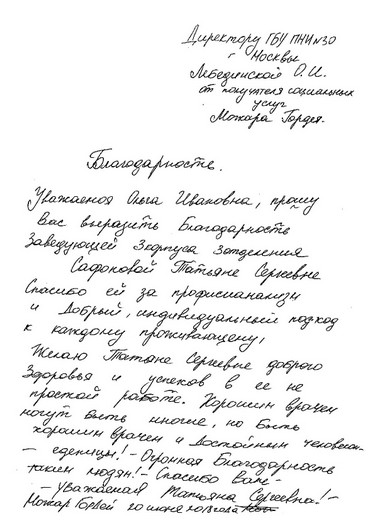 Директору ГБУ ПНИ№30
г Москвы
Лебединской О.И.
от получателя социальных
услуг
Можара Гордея.
Благодарность.
Уважаемоя Ольга Ивановна, прошу
Вас выразить Благодарность
Заведующей 3корпуса 3отделения
Сафоновой Татьяне Сергевне
Спасибо ей за профисианализм
и Добрый, индивидуальный подход
к каждому проживающему,
Желаю Татьяне Сергевне доброго
Здоровья и успехов в ее не
простой работе. Хорошим врачем
могут быть многие, но быть
хорошим врачем и достойным человеком-
- еденицы! - Огромная Благодарность
таким людям! - Спасибо Вам -
- уважаемая Татьяна Сергеевна! -
Можар Гордей 20 июня